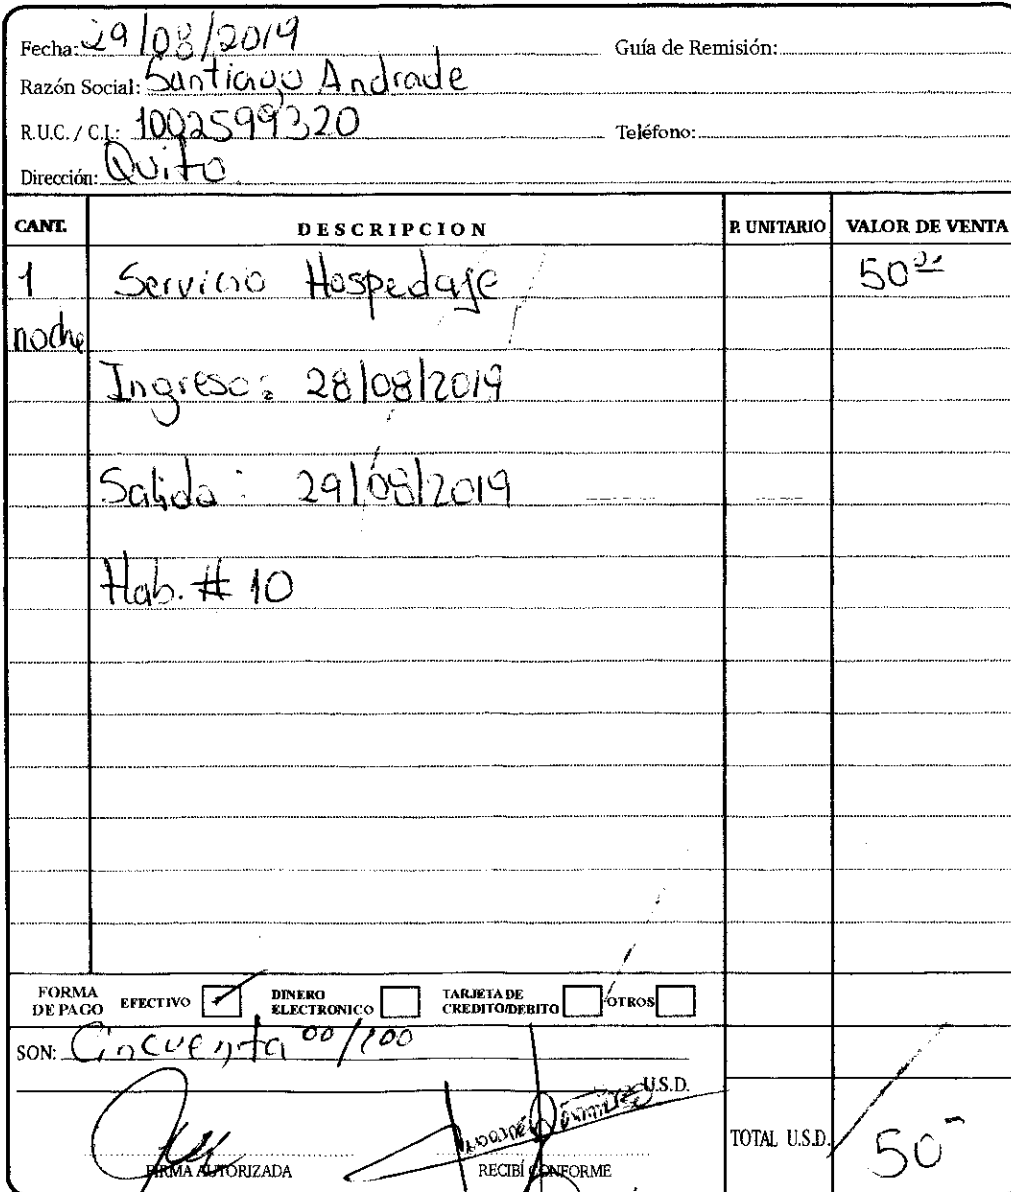 Fecha: 29/08/2019 Guía de Remisión:
Razón Social: Santiago Andrade
R.U.C. / C.I.: 1002599320 Teléfono:
Dirección: Quito
CANT. DESCRIPCION P. UNITARIO VALOR DE VENTA
1 Servicio Hospedaje 50 00
noche
Ingreso: 28/08/2019
Salida: 29/08/2019
Hab. # 10
FORMA DE PAGO EFECTIVO DINERO ELECTRONICO TARJETA DE CREDITO/DEBITO OTROS
SON: Cincuenta 00/100
U.S.D.
FIRMA AUTORIZADA RECIBÍ CONFORME TOTAL U.S.D. 50